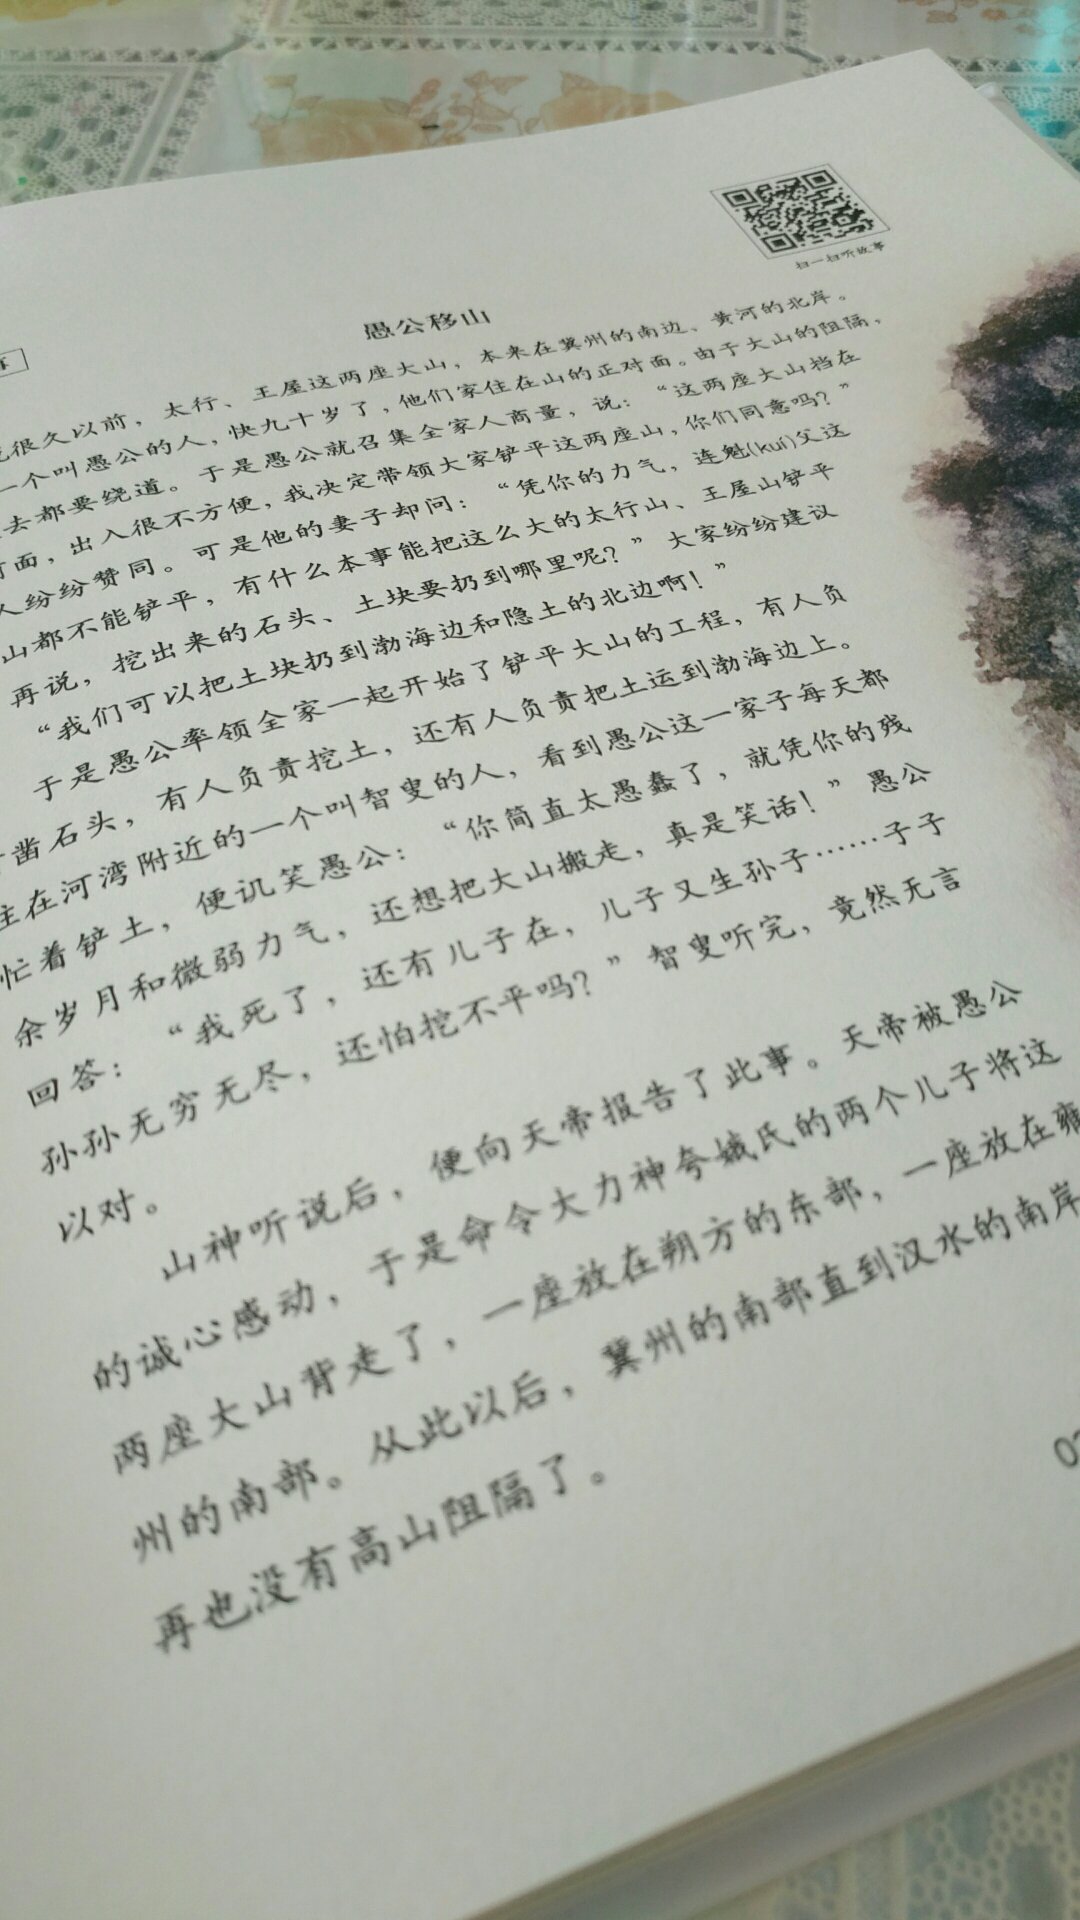 扫一扫听故事
愚公移山
很久以前，太行、王屋这两座大山，本来在冀州的南边、黄河的北岸。
一个叫愚公的人，快九十岁了，他们家住在山的正对面。由于大山的阻隔，
去都要绕道。于是愚公就召集全家人商量，说：“这两座大山挡在
面，出入很不方便，我决定带领大家铲平这两座山，你们同意吗？”
人纷纷赞同。可是他的妻子却问：“凭你的力气，连魁(kuí)父这
山都不能铲平，有什么本事能把这么大的太行山、王屋山铲平
再说，挖出来的石头、土块要扔到哪里呢？”大家纷纷建议
“我们可以把土块扔到渤海边和隐土的北边啊！”
于是愚公率领全家一起开始了铲平大山的工程，有人负
凿石头，有人负责挖土，还有人负责把土运到渤海边上。
住在河湾附近的一个叫智叟的人，看到愚公这一家子每天都
忙着铲土，便讥笑愚公：“你简直太愚蠢了，就凭你的残
余岁月和微弱力气，还想把大山搬走，真是笑话！”愚公
回答：“我死了，还有儿子在，儿子又生孙子……子子
孙孙无穷无尽，还怕挖不平吗？”智叟听完，竟然无言
以对。
山神听说后，便向天帝报告了此事。天帝被愚公
的诚心感动，于是命令大力神夸娥氏的两个儿子将这
两座大山背走了，一座放在朔方的东部，一座放在雍
州的南部。从此以后，冀州的南部直到汉水的南岸
再也没有高山阻隔了。